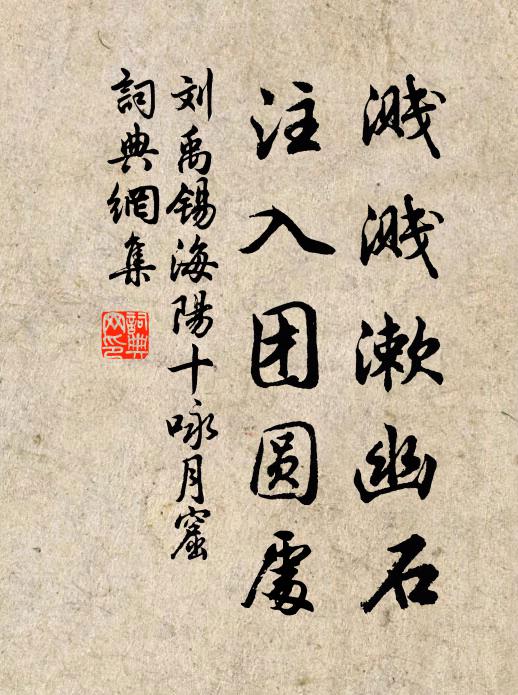 溅溅漱幽石
注入团圆處
刘禹锡海陽十咏月窟
詞典網集
詞典网印